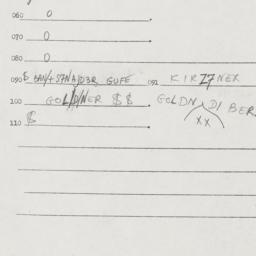 060 0
070 0
080 0
090 $ GUFE 092 KIRZNER
100 GOLDNER $$ GOLDN DI BER
110 $
XX